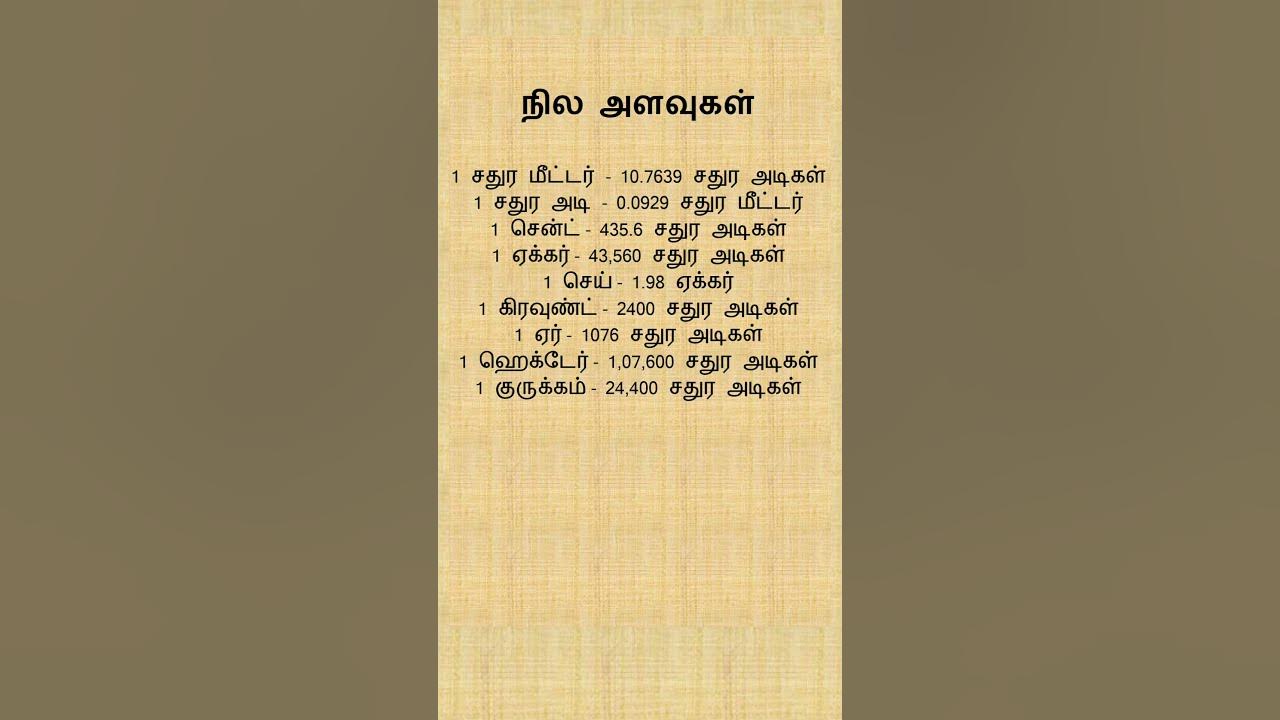 நில அளவுகள்
1 சதுர மீட்டர் - 10.7639 சதுர அடிகள்
1 சதுர அடி - 0.0929 சதுர மீட்டர்
1 சென்ட் - 435.6 சதுர அடிகள்
1 ஏக்கர் - 43,560 சதுர அடிகள்
1 செய் - 1.98 ஏக்கர்
1 கிரவுண்ட் - 2400 சதுர அடிகள்
1 ஏர் - 1076 சதுர அடிகள்
1 ஹெக்டேர் - 1,07,600 சதுர அடிகள்
1 குருக்கம் - 24,400 சதுர அடிகள்